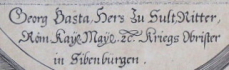 Georg Basta, Herr Zu Sult Ritter,
Röm. Kayẞ. Mayẞ. ꝛc. Kriegs Obrister
in Sibenburgen.